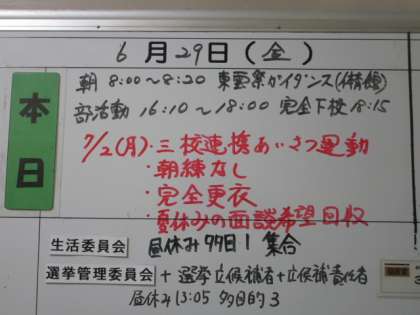 6月29日(金)
本日
朝 8:00〜8:20 東雲祭ガイダンス(体育館)
部活動 16:10〜18:00 完全下校 18:15
7/2(月)・三校連携あいさつ運動
・朝練なし
・完全更衣
・夏休みの面談希望回収
生活委員会 昼休み 多目1 集合
選挙管理委員会 +選挙立候補者+立候補責任者
昼休み13:05 多目的3